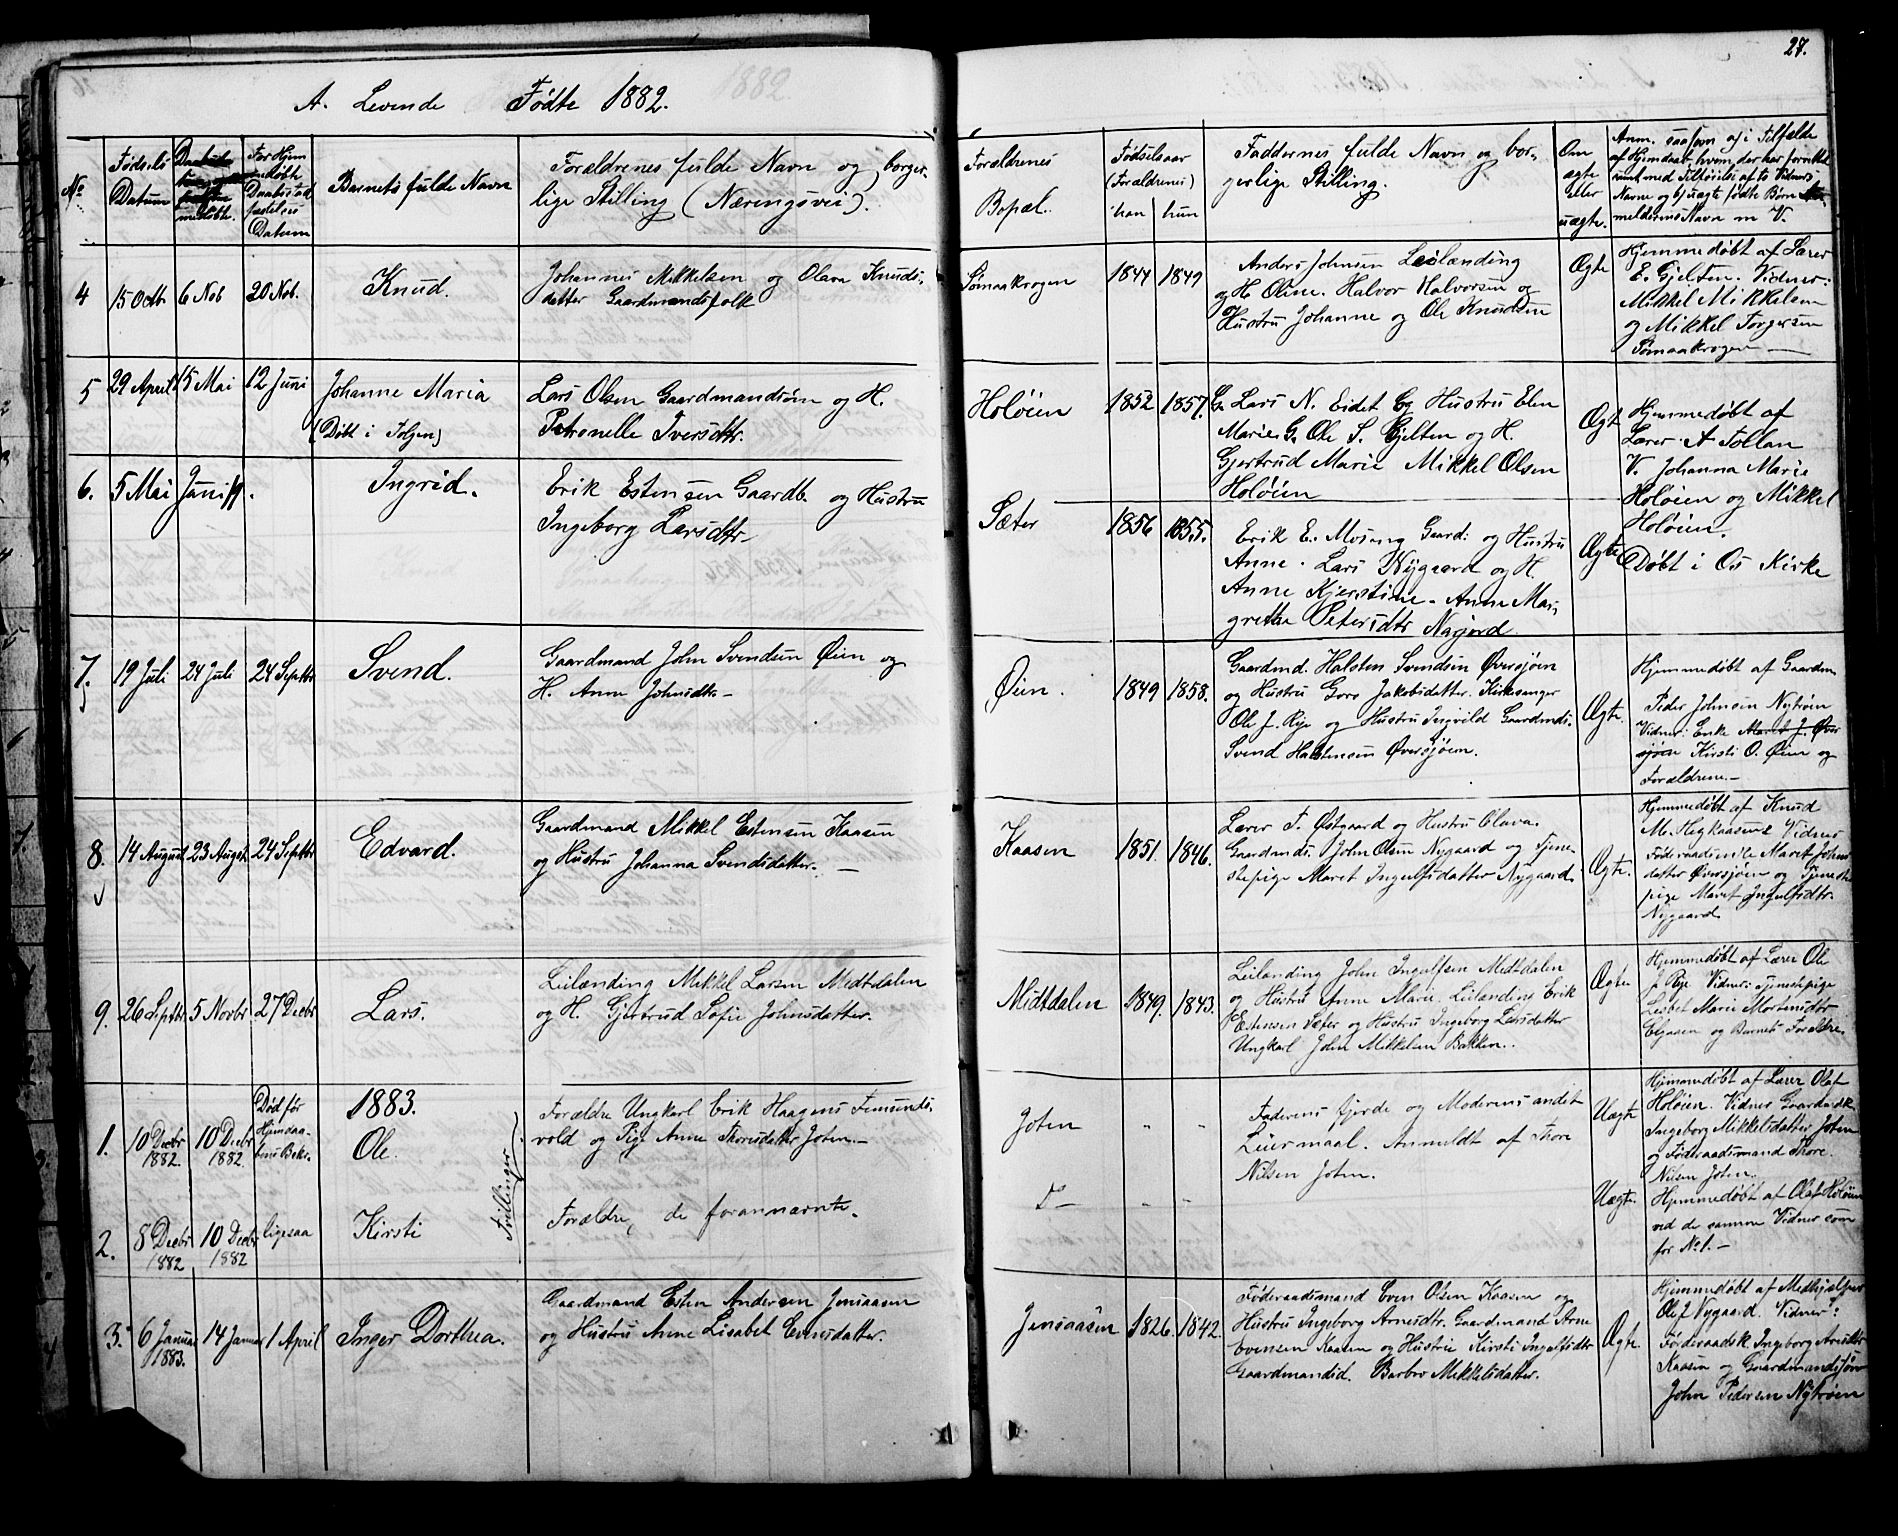 A. Levende Fødte 1882.
27.
No
Fødsels
Datum
medøbt.
For Hjem
medøbte
Daabsstad
fæstelses
Datum
Barnets fulde Navn
Forældrenes fulde Navn og borger-
lige Stilling (Næringsvei).
Forældrenes
Bopæl.
Fødselsaar
(Forældrenes)
han hun
Faddernes fulde Navn og bor-
gerlige Stilling.
Om
ægte
eller
uægte.
Anm. saasom a) i Tilfælde
af Hjemdaab, hvem der har forrettet
samt med Tilføielse af to Vidners
Navne og b) uægte fødte Børn An-
melderens Navn m V.
4
15 Octr.
6 Nob
20 Nob.
Knud.
Johannes Mikkelsen og Olava Knuds-
datter Gaardmandsfolk
Sømaakrogen
1844
1849
Anders Johnsen Leilænding
og H. Oline. Halvor Halvorsen og
Hustru Johanne og Ole Knudsen
Ægte
Hjemmedøbt af Lærer
E. Gjelten. Vidner:
Mikkel Mikkelsen
og Mikkel Torgersen
Sømaakrogen —
5
29 April
15 Mai
12 Juni
Johanne Maria
(Døbt i Tolgen)
Lars Olsen Gaardmandssøn og H.
Petronelle Iversdtr.
Holøien
1852
1857.
G. Lars N. Eidet og Hustru Elen
Marie G. Ole S. Gjelten og H.
Gjertrud Marie Mikkel Olsen
Holøien
Ægt
Hjemmedøbt af
Lærer A Tollan
V. Johanna Marie
Holøien og Mikkel
Holøien.
6.
5 Mai
Juni
Ingrid.
Erik Estensen Gaardb. og Hustru
Ingeborg Larsdtr.
Sæter
1856
1855.
Erik E. Moseng Gaard: og Hustru
Anne. Lars Nygaard og H.
Anne Kjerstine. Anne Mar-
grethe Petersdtr Nagjord.
Ægte
Døbt i Os Kirke
7.
19 Juli
24 Juli
24 Septbr
Svend.
Gaardmand John Svendsen Øien og
H. Anne Johnsdtr.
Øien.
1849
1858.
Gaardmd. Halsten Svendsen Øversjøen
og Hustru Goro Jakobsdatter. Kirkesanger
Ole J. Rye og Hustru Ingvild Gaardmds.
Svend Halstensen Øversjøen.
Ægte.
Hjemmedøbt af Gaardm
Peder Johnsen Nytrøen
Vidner: Enke Maret J. Øver
sjøen Kirsti O. Øien og
Forældrene.
8.
14 August
23 Augst.
24 Septbr
Edvard.
Gaardmand Mikkel Estensen Kaasen
og Hustru Johanna Svendsdatter. —
Kaasen
1851.
1846.
Lærer T. Østgaard og Hustru Olava.
Gaardmds. John Olsen Nygaard og Tjene-
stepige Maret Ingulfsdatter Nygaard.
Ægte.
Hjemmedøbt af Knud
Vidner
Maret Johns
datter Øversjøen og Tjeneste
pige Maret Ingulfsdtr.
Nygaard
9.
26 Septbr.
5 Novbr
27 Decbr
Lars.
Leilænding Mikkel Larsen Midtdalen
og H. Gjertrud Sofie Johnsdatter.
Midtdalen
1849.
1843.
Leilænding John Ingulfsen Midtdalen
og Hustru Anne Marie. Leilænding Erik
Estensen Sæter og Hustru Ingeborg Larsdatter
Ungkarl John Mikkelsen Bakken.
Ægte.
Hjemmedøbt af Lærer Ole
J. Rye. Vidner: Tjenestepige
Lisbet Marie Mortensdtr
Elgaaen og Barnets Forældre.
1883.
1.
10 Decbr
1882.
10 Decbr
1882.
Død før
Hjemdaa-
bens Bekr.
Ole.
Tvillinger
Forældre Ungkarl Erik Haagens Femunds-
vold og Pige Anne Thoresdatter Joten.
Joten
" "
Faderens fjerde og Moderens andet
Leiermaal. Anmeldt af Thore
Nilsen Joten.
Uægte
Hjemmedøbt af Lærer Olaf
Holøien. Vidner Gaardmdsk.
Ingeborg Mikkelsdatter Joten
og Føderaadsmand Thore
Nilsen Joten.
2.
8 Decbr
1882
10 Decbr
1882
ligesaa
Kirsti
Forældre, de forannævnte.
D—
" "
Uægte.
Hjemmedøbt af Olaf Holøien
ved de samme Vidner som
for No 1.
3.
6 Januar
1883.
14 Januar
1 April
Inger Dorthea.
Gaardmand Esten Andersen Jensaasen
og Hustru Anne Lisabet Evensdatter.
Jensaasen
1826.
1842.
Føderaadsmand Even Olsen Kaasen og
Hustru Ingeborg Arnesdtr. Gaardmand Arne
Evensen Kaasen og Hustru Kirsti Ingulfsdtr
Gaardmandsd. Barbro Mikkelsdatter.
Ægte.
Hjemmedøbt af Medhjælper
Ole J. Nygaard. Vidner:
Føderaadsk. Ingeborg Arnesdtr
Kaasen og Gaardmandssøn
John Pedersen Nytrøen